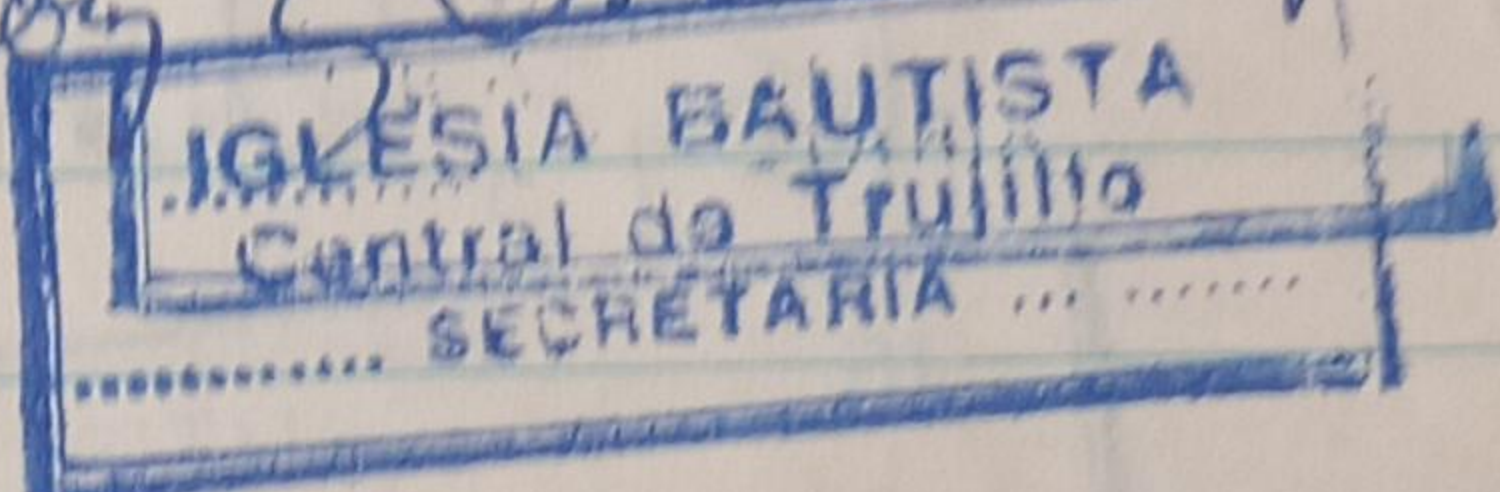 IGLESIA BAUTISTA
Central de Trujillo
............ SECRETARIA ... .......